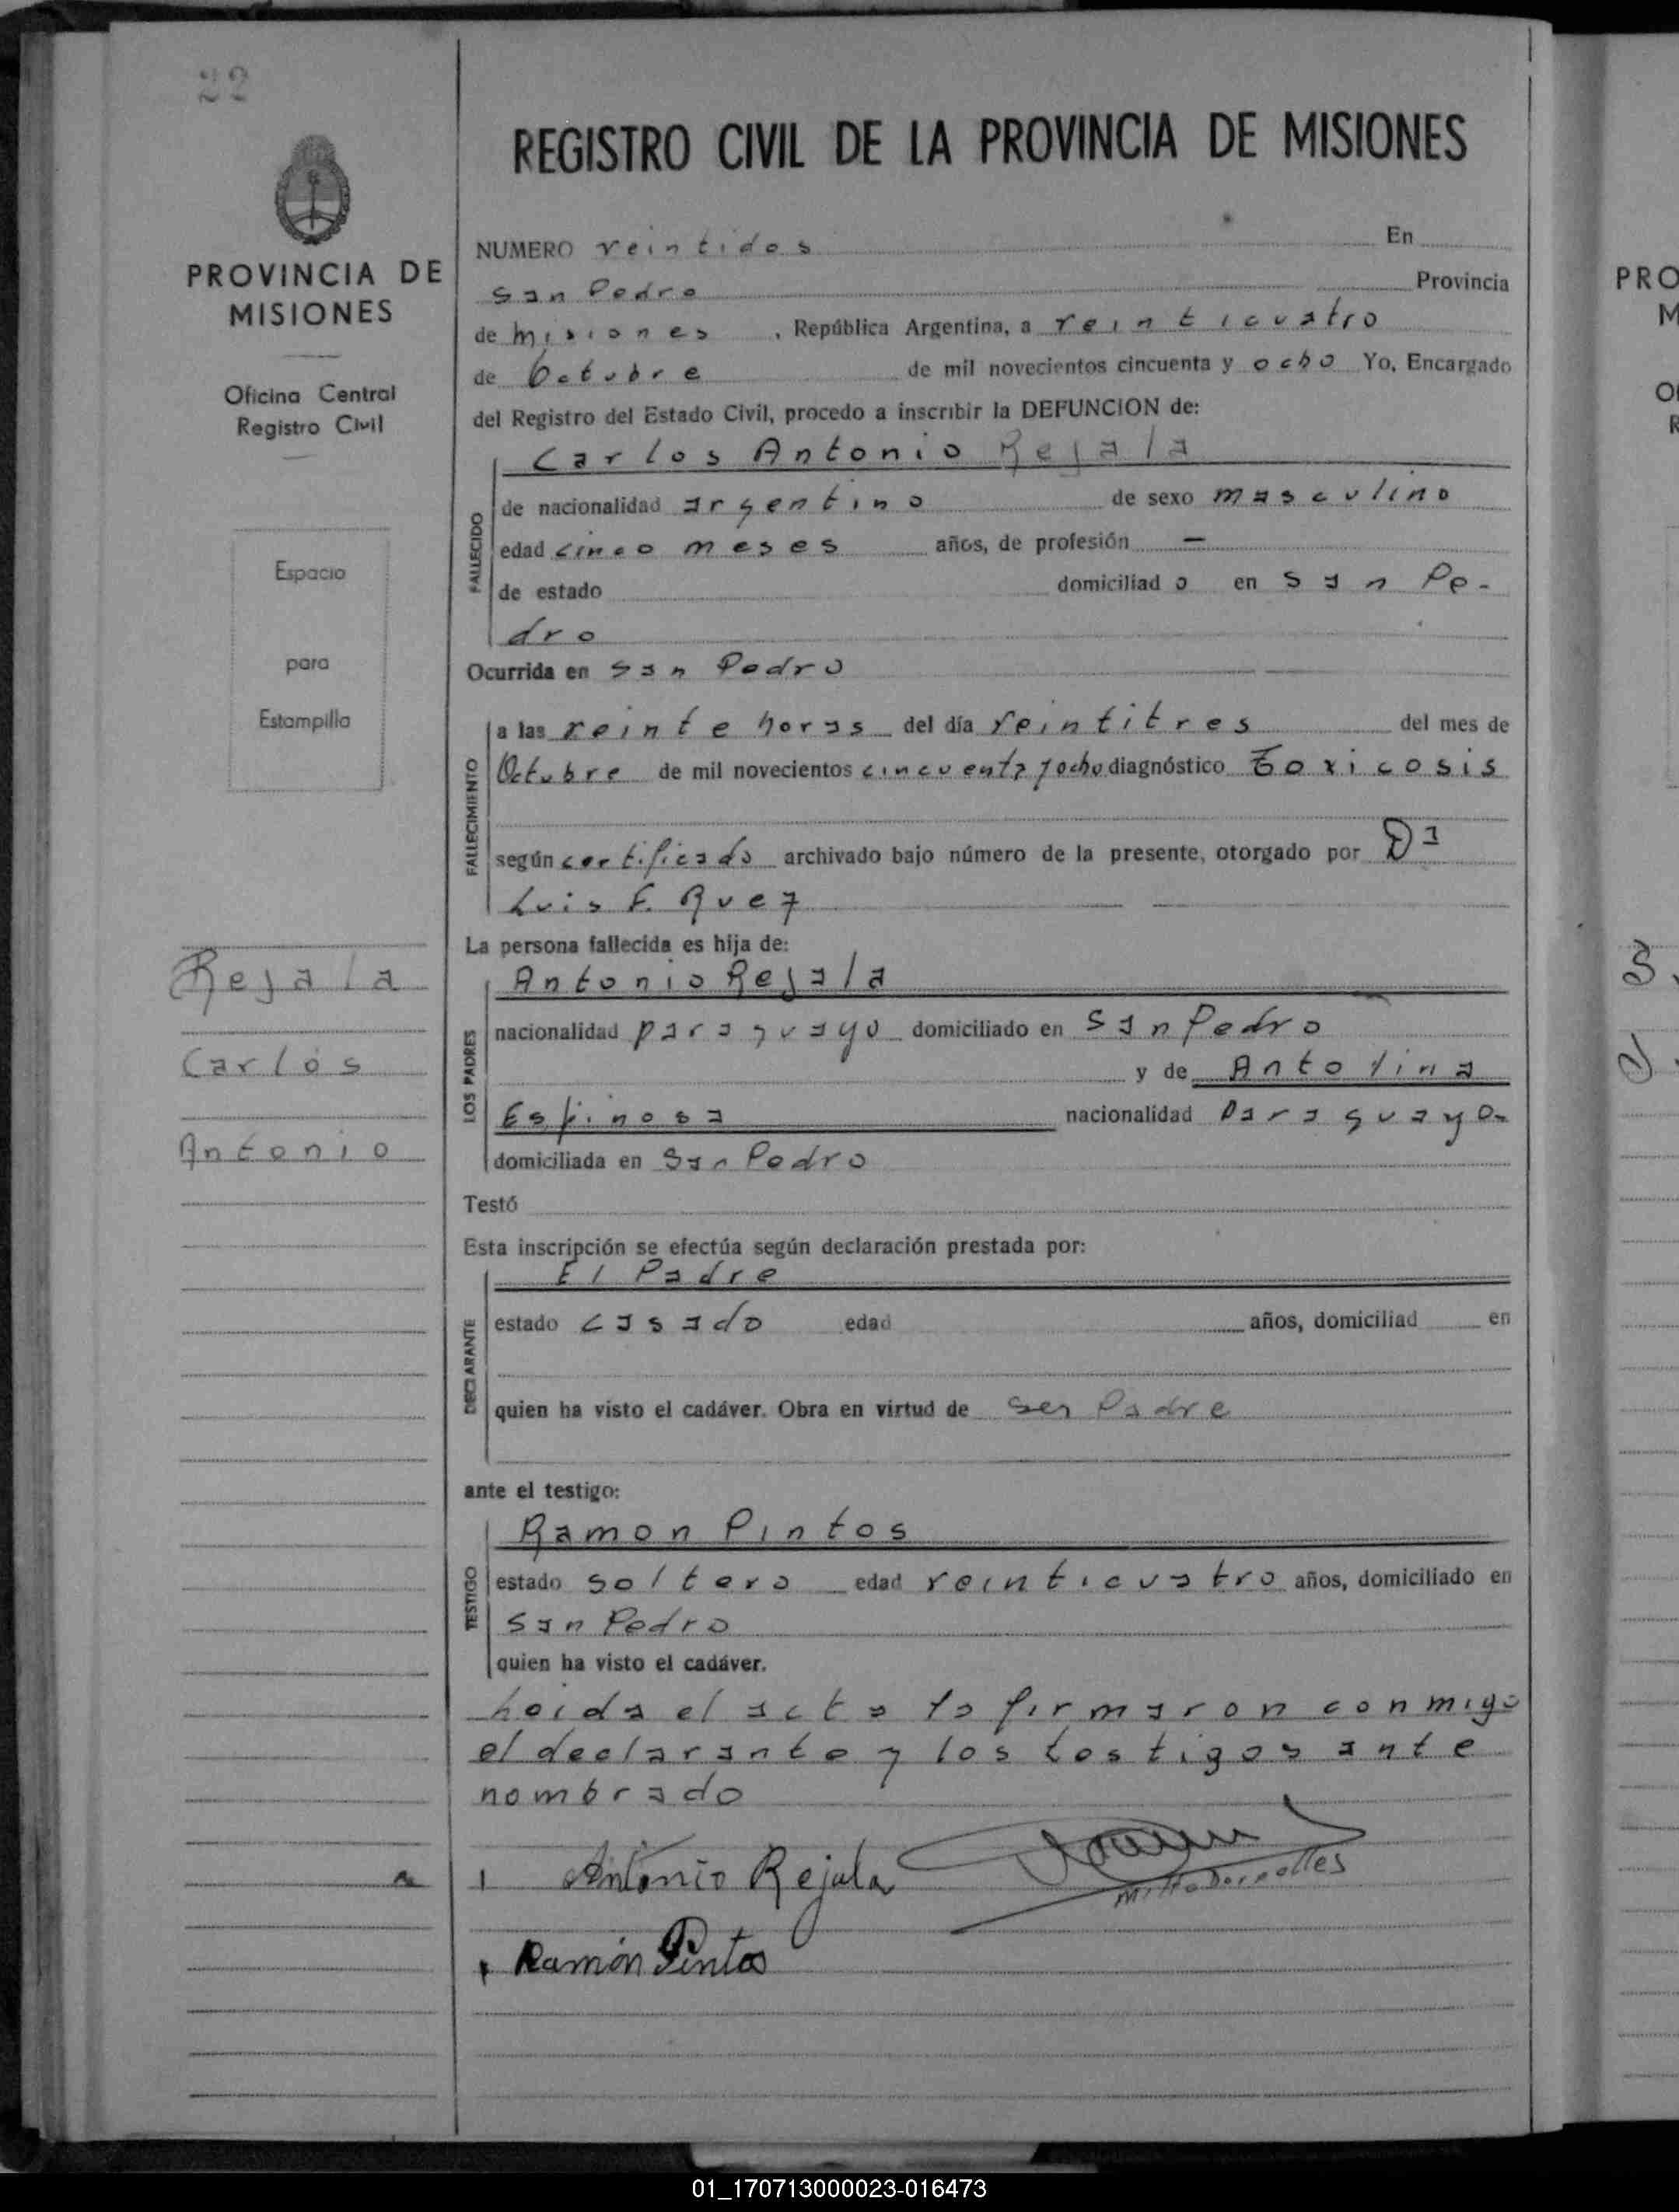 22
PROVINCIA DE
MISIONES
Oficina Central
Registro Civil
Espacio
para
Estampilla
Rejala
Carlos
Antonio
REGISTRO CIVIL DE LA PROVINCIA DE MISIONES
NUMERO veintidos En
San Pedro Provincia
de misiones , República Argentina, a veinticuatro
de Octubre de mil novecientos cincuenta y ocho Yo, Encargado
del Registro del Estado Civil, procedo a inscribir la DEFUNCION de:
Carlos Antonio Rejala
FALLECIDO
de nacionalidad argentino de sexo masculino
edad cinco meses años, de profesión —
de estado domiciliado en San Pe-
dro
Ocurrida en San Pedro
FALLECIMIENTO
a las veinte horas del día veintitres del mes de
Octubre de mil novecientos cincuenta y ocho diagnóstico Toxicosis
según certificado archivado bajo número de la presente, otorgado por
Luis F.
La persona fallecida es hija de:
LOS PADRES
Antonio Rejala
nacionalidad paraguayo domiciliado en San Pedro
y de Antolina
Espinosa nacionalidad paraguaya
domiciliada en San Pedro
Testó
Esta inscripción se efectúa según declaración prestada por:
DECLARANTE
El Padre
estado casado edad años, domiciliad en
quien ha visto el cadáver. Obra en virtud de ser Padre
ante el testigo:
TESTIGO
Ramon Pintos
estado soltero edad veinticuatro años, domiciliado en
San Pedro
quien ha visto el cadáver.
Leida el acta la firmaron conmigo
el declarante y los testigos ante
nombrado
Antonio Rejala
Ramón Pintos
PRO
M
01_170713000023-016473